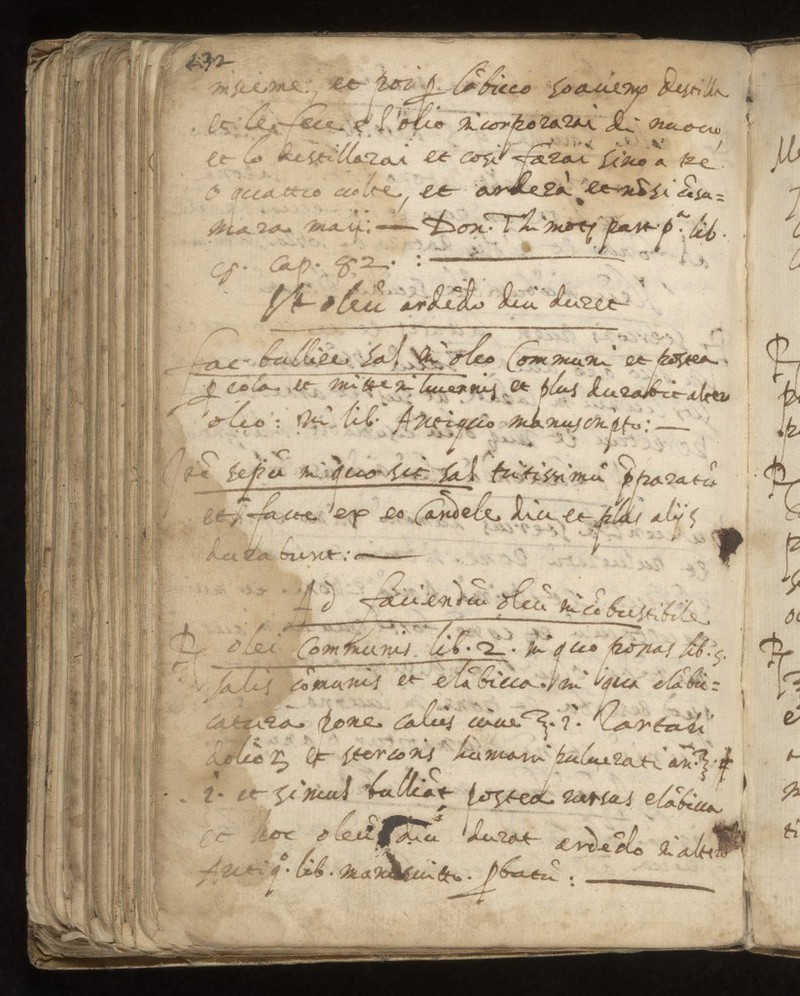 232
insieme, et poi p lābicco soavemẽ destilla
et le fece e l'olio incorporarai di nuovo,
et lo destillarai et cosi farai sino à tre
o quattro uolte, et arderà et nō si cōsu=
mara mai: — Don. Thimoτ, part pª. lib.
cap. 82. :
Vt oleū ardēdo diu duret
fac bullire sal in oleo Communi et postea
p cola et mitte in lucernis et plus durabit altero
oleo: in lib. Antiquo manuscripto: —
sepū in quo sit sal tritissimū p̄paratū
et facte ex eo Cādele diu et plus alijs
durabunt: —
Ad faciendū oleū incōbustibile
℞ olei Communis lib. 2. in quo ponas lib. s.
salis cōmunis et elābicca. in qua elābic=
catura pone calcis uiue ℥. i. Tartari
doliorȝ et stercoris humani puluerati añ. ℥.
i. et simul bulliāt postea rursus elābicca
et hoc oleū diu durat ardēdo in altero
Antiqº. lib. manuscritto. pbatū : —